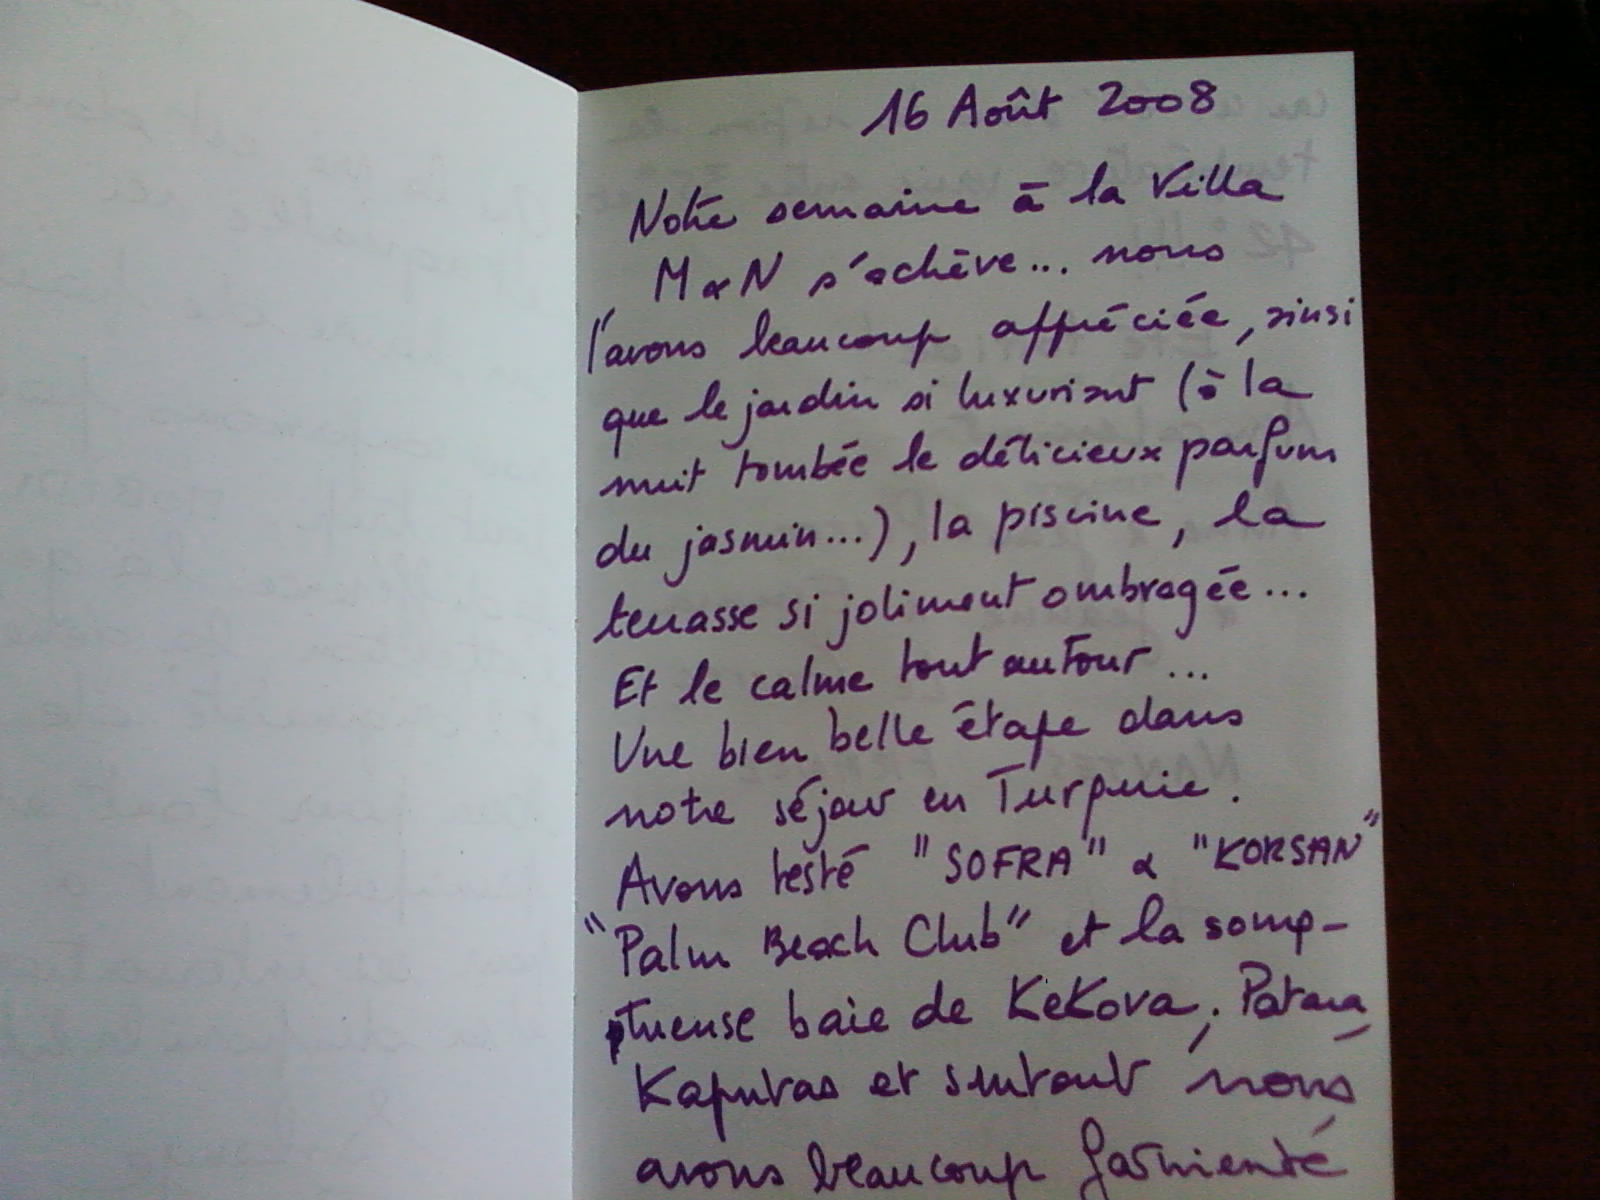 16 Août 2008
Notre semaine à la Villa
M & N s'achève... nous
l'avons beaucoup appréciée, ainsi
que le jardin si luxuriant (à la
nuit tombée le délicieux parfum
du jasmin...), la piscine, la
terrasse si joliment ombragée...
Et le calme tout autour...
Une bien belle étape dans
notre séjour en Turquie.
Avons testé "SOFRA" & "KORSAN"
"Palm Beach Club" et la somp-
tueuse baie de Kekova, Patara,
Kaputas et surtout nous
avons beaucoup farnienté